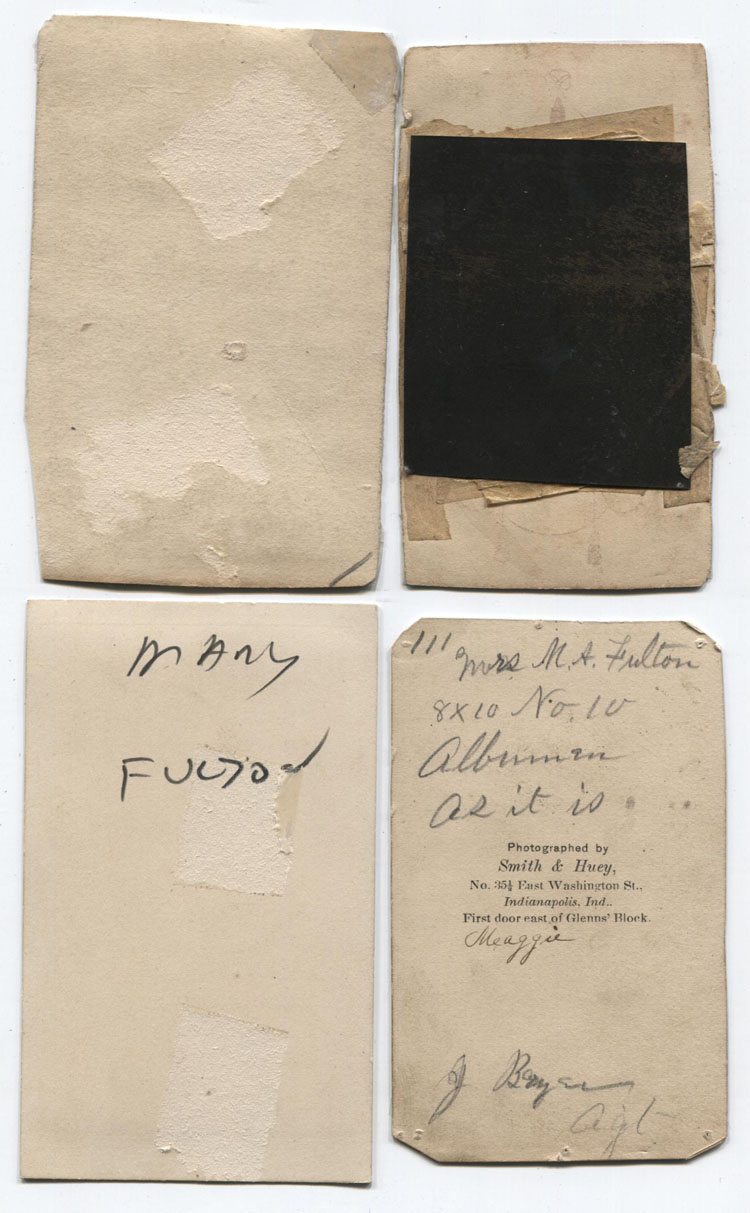 MARY
FULTON
111 Mrs M. A. Fulton
8x10 No. 10
Albumen
As it is
Photographed by
Smith & Huey,
No. 35½ East Washington St.,
Indianapolis, Ind..
First door east of Glenns' Block.
Meaggie
J
Agt